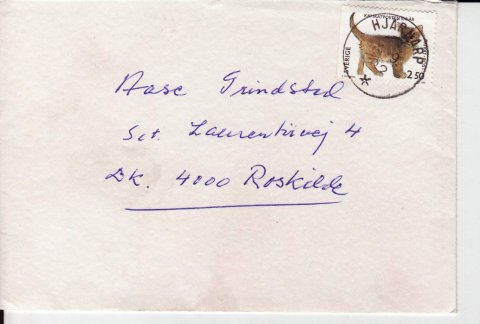 HJÄRNARP
SVERIGE
2.50
Aase Grindsted
Sct. Laurentiivej 4
DK. 4000 Roskilde